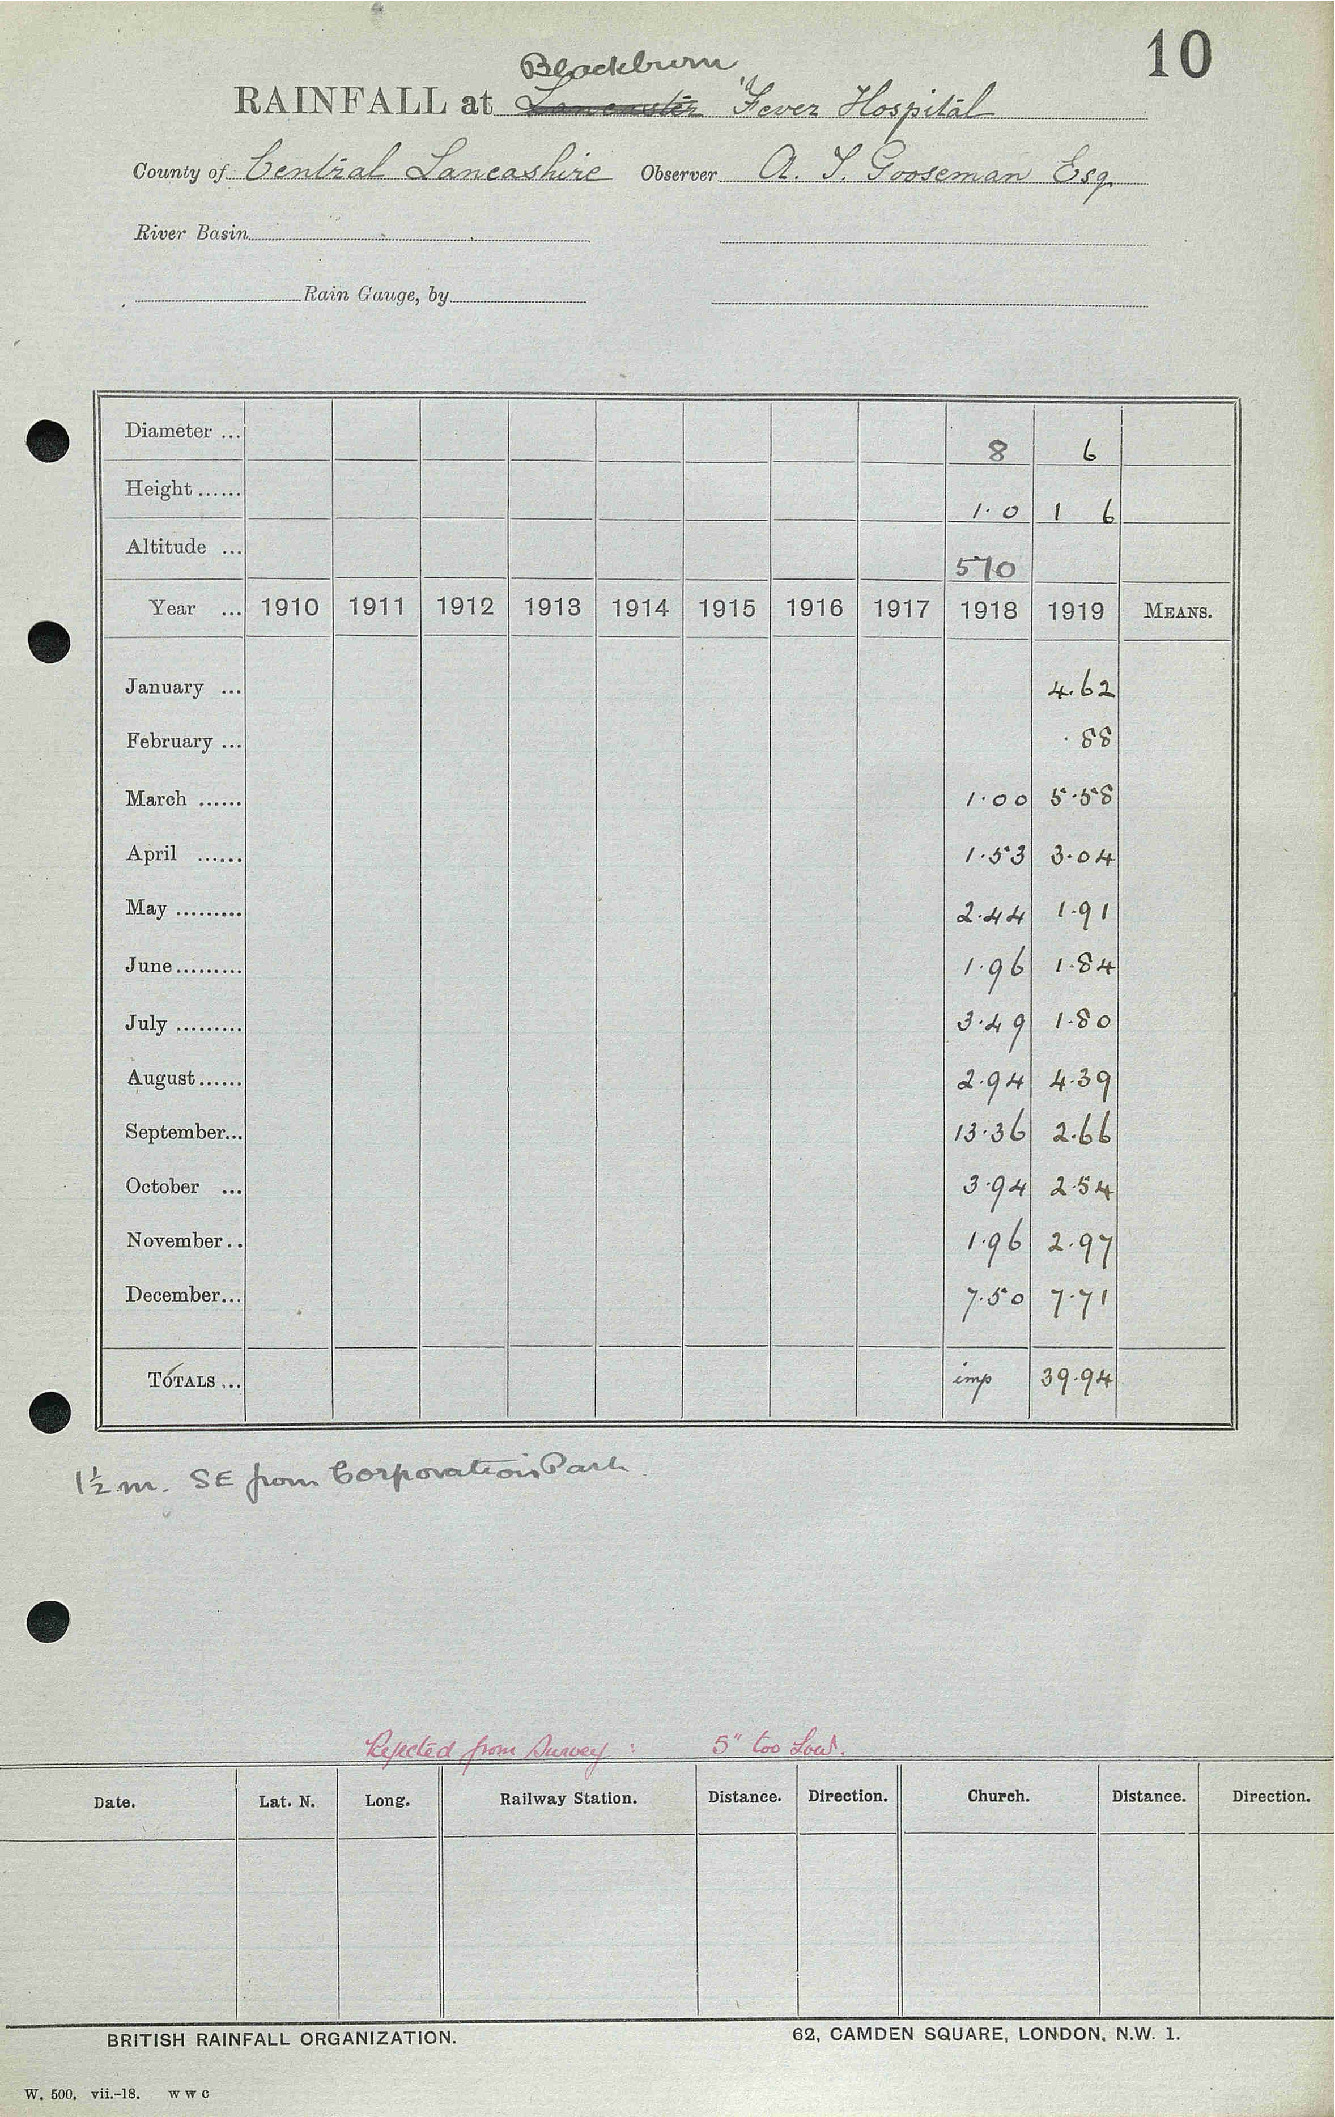 10
Blackburn
RAINFALL at Lancaster Fever Hospital
County of Central Lancashire Observer A. T. Gooseman Esq
River Basin
Rain Gauge, by
Diameter ... 8 6
Height...... 1.0 1 6
Altitude ... 570
Year ... 1910 1911 1912 1913 1914 1915 1916 1917 1918 1919 MEANS.
January ... 4.62
February ... .88
March ...... 1.00 5.58
April ...... 1.53 3.04
May ......... 2.44 1.91
June......... 1.96 1.84
July ......... 3.49 1.80
August...... 2.94 4.39
September... 13.36 2.66
October ... 3.94 2.54
November.. 1.96 2.97
December... 7.50 7.71
TOTALS ... imp 39.94
1½ m. SE from Corporation Park.
Rejected from Survey : 5" too Low.
Date. Lat. N. Long. Railway Station. Distance. Direction. Church. Distance. Direction.
BRITISH RAINFALL ORGANIZATION. 62, CAMDEN SQUARE, LONDON, N.W. 1.
W. 500, vii.-18. W W C